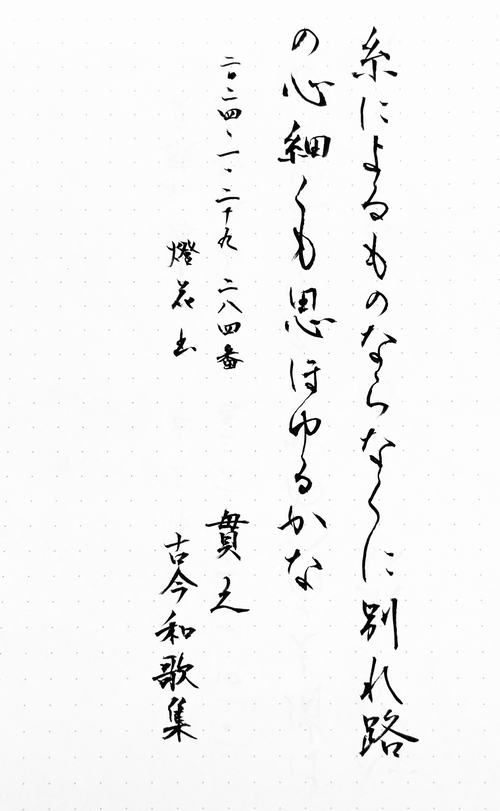 糸によるものならなくに別れ路
の心細くも思ほゆるかな
二〇二四、一、二十九 二八四番
燈花士
貫之
古今和歌集